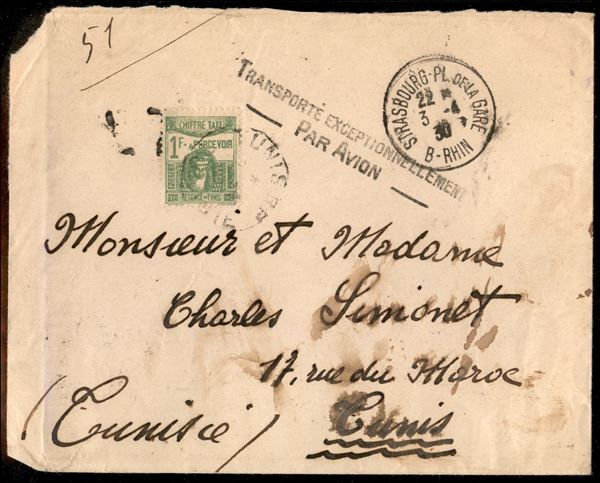 51
TRANSPORTÉ EXCEPTIONNELLEMENT
PAR AVION
STRASBOURG-PL. DE LA GARE
22 *
3 -4
30
B-RHIN
CHIFFRE TAXE
1F À PERCEVOIR
RÉGENCE DE TUNIS
TUNIS R.P.
Monsieur et Madame
Charles Simonet
17, rue du Maroc
(Tunisie) Tunis